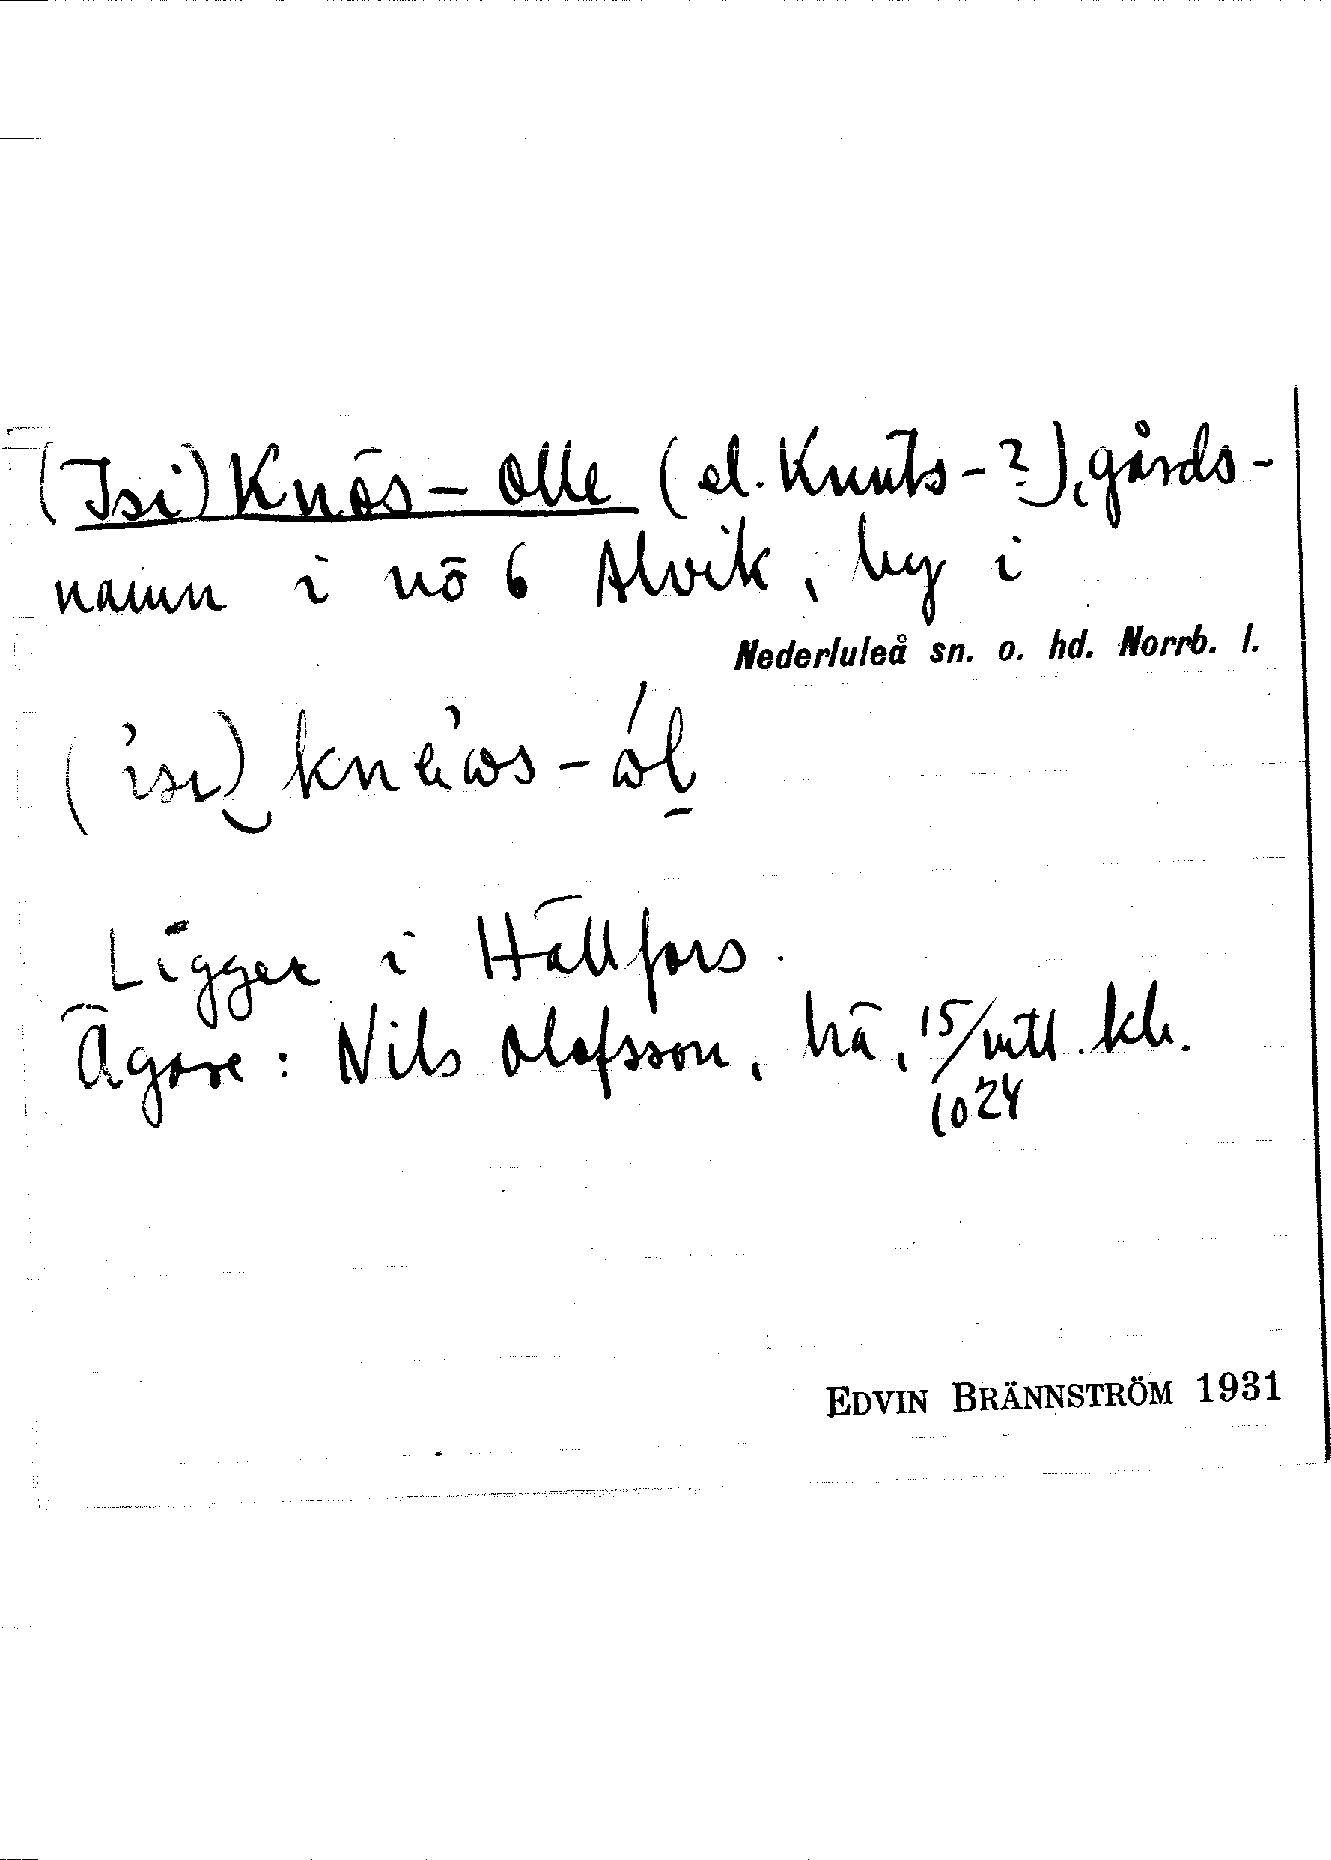 (Isi) Knös-Olle (el. Knuts-?), gårds-
namn i nö 6 Alvik, by i
Nederluleå sn. o. hd. Norrb. l.
(isi) knews-ol
Ligger i Hällfors.
Ägare: Nils Olofsson, hä, 15/1024 mtl. kh.
EDVIN BRÄNNSTRÖM 1931